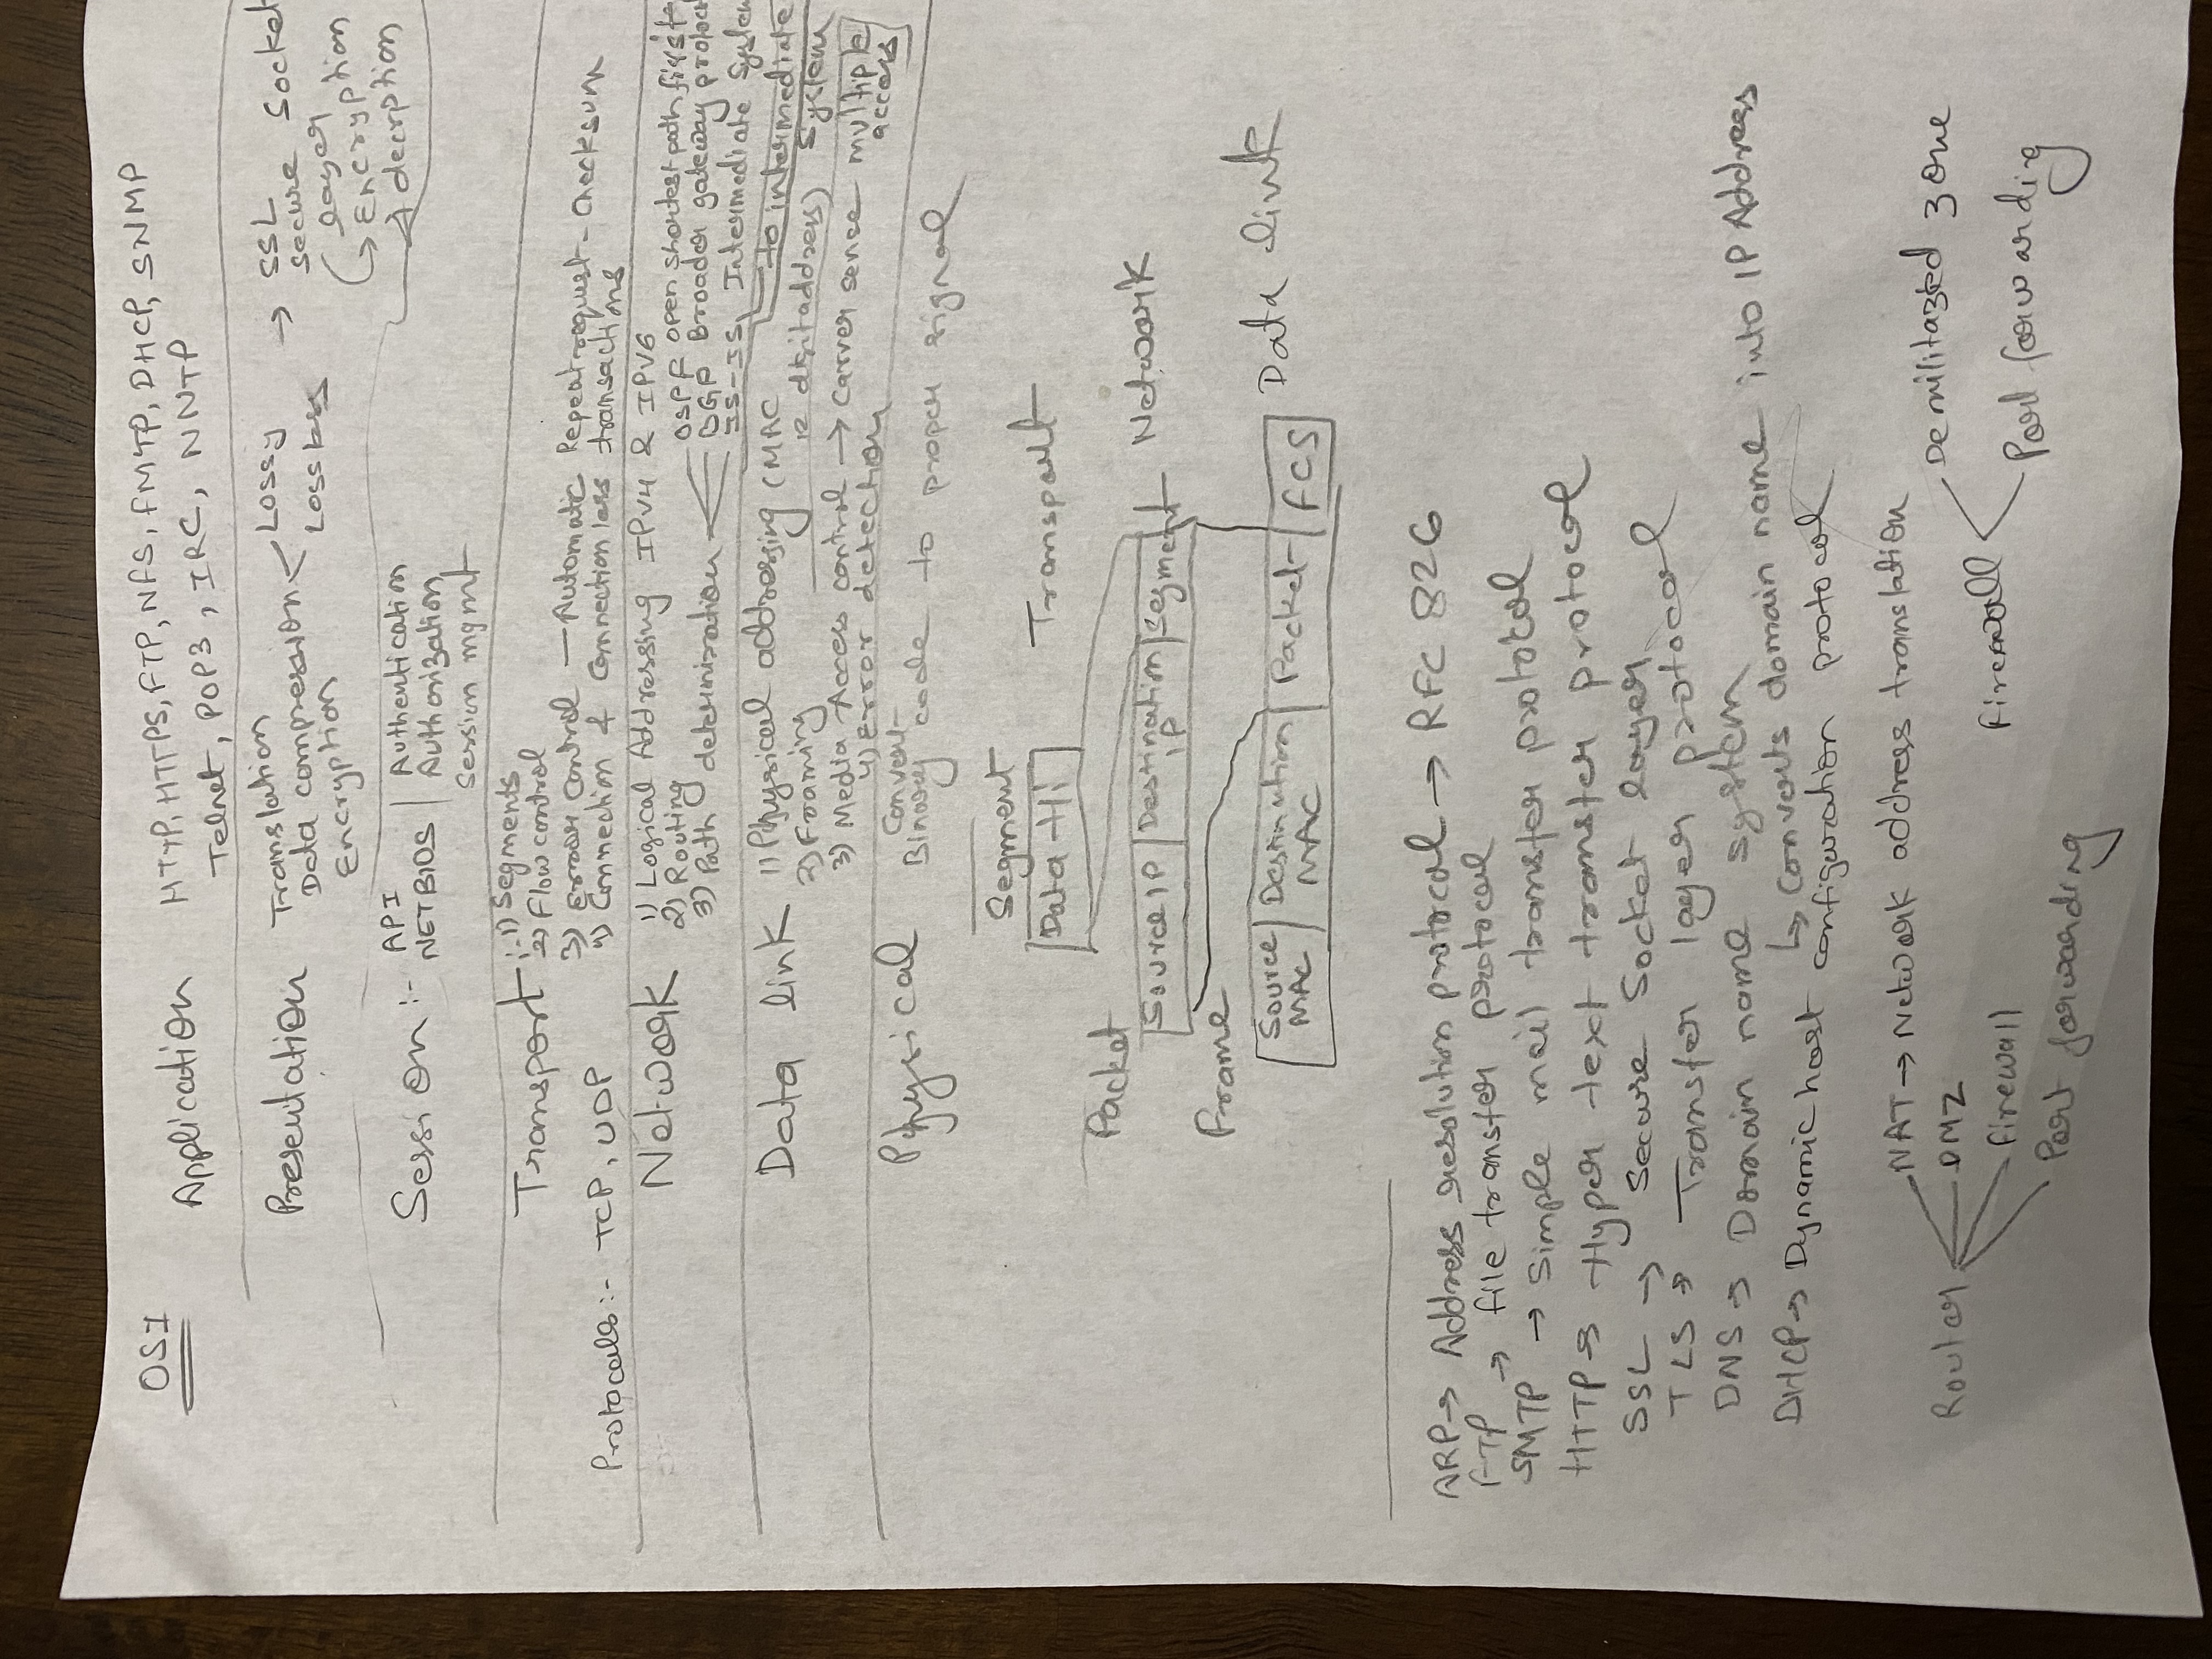 OSI
Application HTTP, HTTPS, FTP, NFS, FMTP, DHCP, SNMP
Telnet, POP3, IRC, NNTP
Presentation Translation
Data compression Lossy
Lossless
Encryption
→ SSL
Secure Socket
layer
↳ Encryption
→ decrption
Session :- API
NETBIOS
Authentication
Authorization
Session mgmt
Transport :- 1) Segments
2) Flow control
3) Error control — Automatic Repeat request - Checksum
4) Connection & Connection less transactions
Protocals :- TCP, UDP
Network 1) Logical Addressing IPV4 & IPV6
2) Routing
3) Path determination
OSPF open shortest path first
BGP Broader gateway protoc
IS-IS, Intermediate System
to intermediate
System
Data link 1) Physical addressing (MAC
12 digit address)
2) Framing
3) Media Access control → Carrer sense multiple
access
4) Error detection
Physical Convert
Binary code to proper signal
Segment
Data - Hi Transport
Packet
Source IP Destination IP Segment Network
Frame
Source MAC Destination MAC Packet FCS Data link
ARP → Address resolution protocal → RFC 826
FTP → file transfer protocal
SMTP → Simple mail transfer protokol
HTTP → Hyper text transfer protocol
SSL → Secure Socket layer
TLS → Transfer layer protocal
DNS → Domain name system
↳ Converts domain name into IP Address
DHCP → Dynamic host configuration protocol
Router
NAT → Network address translation
DMZ
firewall
Port forwarding
firewall
Demilitazied zone
Port forwarding